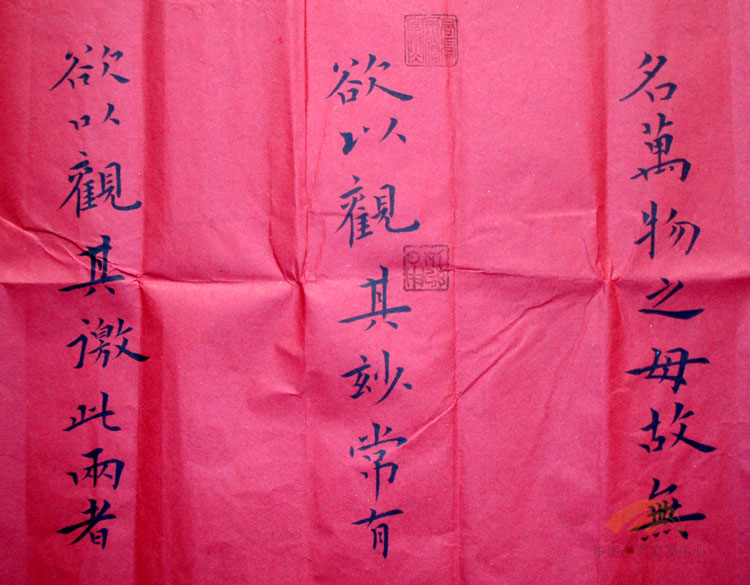 名萬物之母故無
欲以觀其妙常有
欲以觀其譤此兩者